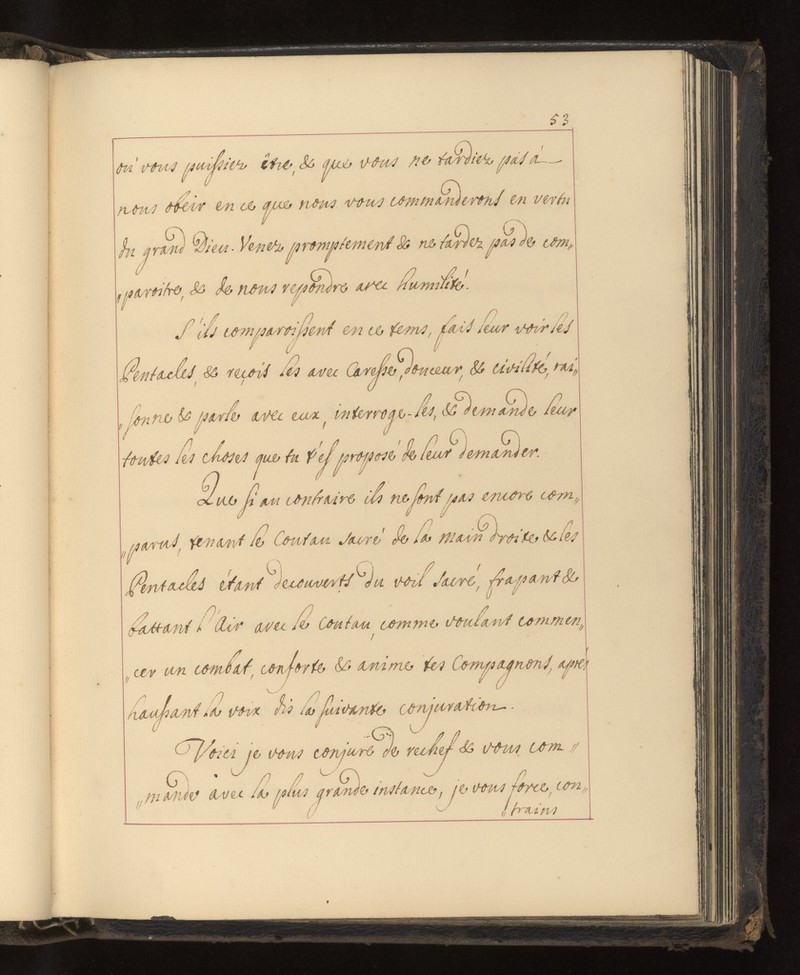 53
où vous puissiez être, & que vous ne tardiez pas à
nous obeir en ce que nous vous commanderons en vertu
du grand Dieu. Venez promptement & ne tardez pas de com„
„paroitre, & de nous repondre avec humilité.
S'ils comparoissent en ce tems, fais leur voir les
Pentacles, & reçois les avec Caresse, douceur, & civilité, rai„
„sonne & parle avec eux, interroge-les, & demande leur
toutes les choses que tu t'es proposé de leur demander.
Que si au contraire ils ne sont pas encore com„
„parus, tenant le Coutau Sacré de la main droite & les
Pentacles étant decouverts du voil Sacré, frapant &
battant l'Air avec le Coutau, comme voulant commen„
„cer un combat, conforte & anime tes Compagnons, aprés
haussant la voix dis la suivante conjuration.
Voici je vous conjure de rechef & vous com„
„mande avec la plus grande instance, je vous force, con„
„trains